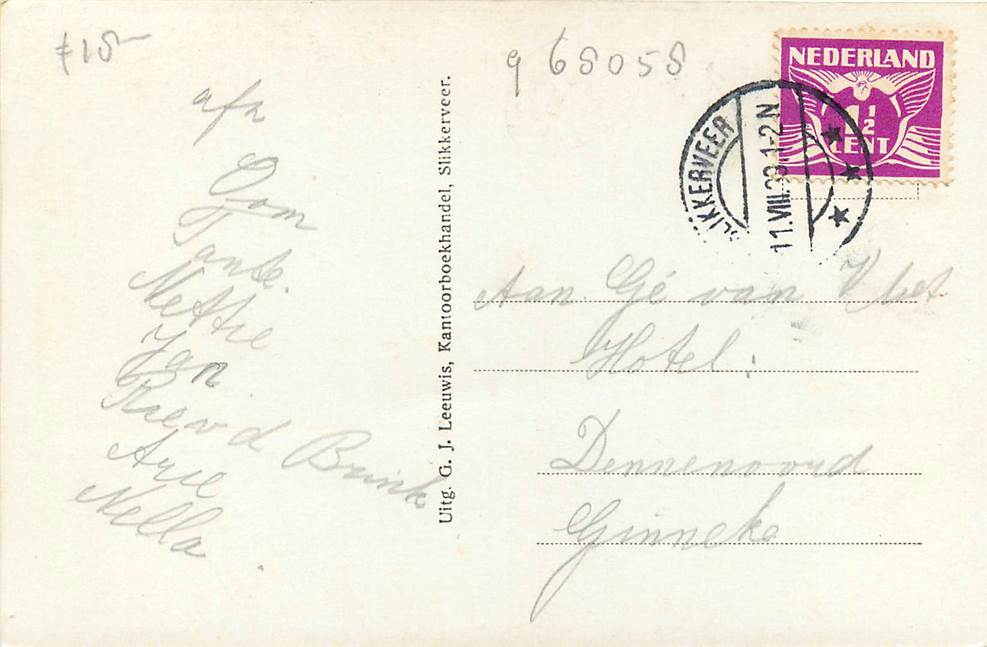 f 15-
9 68058
NEDERLAND
1½
CENT
SLIKKERVEER
11.VIII.39.1-2 N
afz
Oom
Tante.
Nettie
Jan
Rie v d Brink
Arie
Nella
Uitg. G. J. Leeuwis, Kantoorboekhandel, Slikkerveer.
Aan Gé van Vliet
Hotel:
Dennenoord
Ginneke